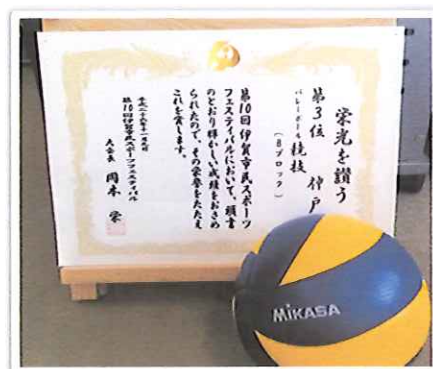 栄光を讃う
第3位 神戸
バレーボール競技
(Bブロック)
第10回伊賀市民スポーツ
フェスティバルにおいて、頭書
のとおり輝かしい成績をおさめ
られたので、その栄誉をたたえ
これを賞します。
平成二十五年十一月九日
第10回伊賀市民スポーツフェスティバル
大会長 岡本 栄
MIKASA